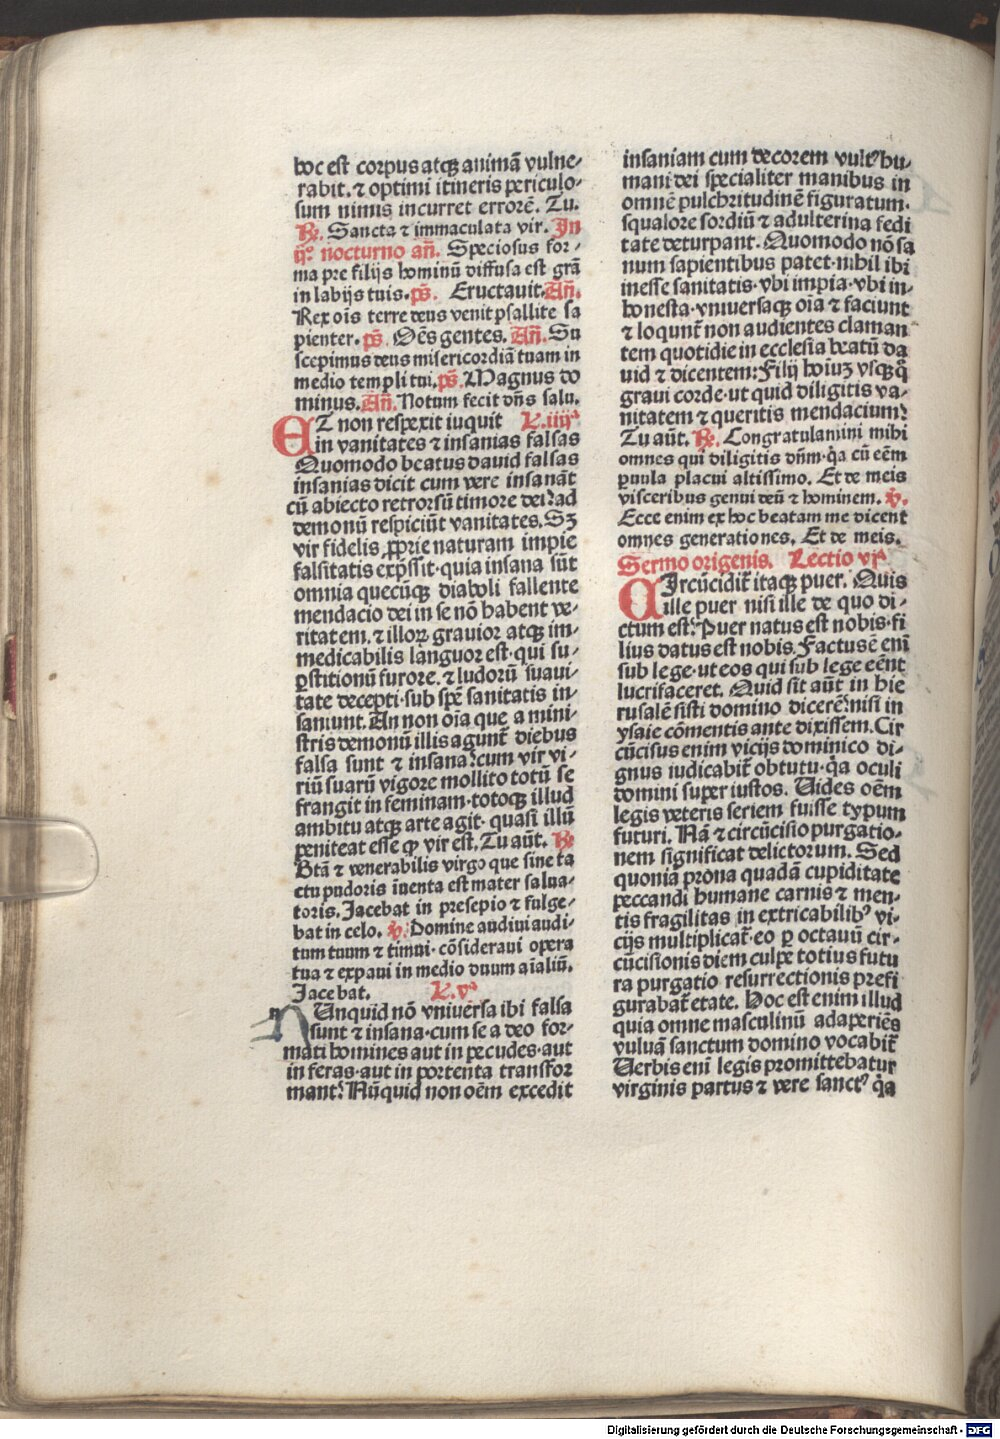 hoc est corpus atqꝫ animā vulne-
rabit. ⁊ optimi itineris periculo-
sum nimis incurret errorē. Tu.
℟. Sancta ⁊ immaculata vir. In
ijº nocturno an̄. Speciosus for-
ma pre filijs hominū diffusa est grā
in labijs tuis. ps̄. Eructauit. An̄.
Rex oīs terre deus venit psallite sa
pienter. ps̄. Oēs gentes. An̄. Su
scepimus deus misericordiā tuam in
medio templi tui. ps̄. Magnus do
minus. An̄. Notum fecit dn̄s salu.
ET non respexit iuquit L. iiijª
in vanitates ⁊ insanias falsas
Quomodo beatus dauid falsas
insanias dicit cum vere insanāt
cū abiecto retrorsū timore dei? ad
demonū respiciūt vanitates. Sꝫ
vir fidelis ꝓprie naturam impie
falsitatis exp̄ssit. quia insana sūt
omnia quecūqꝫ diaboli fallente
mendacio dei in se nō habent ve-
ritatem. ⁊ illoꝝ grauior atqꝫ im-
medicabilis languor est. qui su-
ꝑstitionū furore. ⁊ ludorū suaui-
tate decepti. sub spē sanitatis in-
saniunt. An non oīa que a mini-
stris demonū illis agunt᷑ diebus
falsa sunt ⁊ insana? cum vir vi-
riū suarū vigore mollito totū se
frangit in feminam. totoqꝫ illud
ambitu atqꝫ arte agit. quasi illū
peniteat esse ꝙ vir est. Tu aūt. ℟.
Btā ⁊ venerabilis virgo que sine ta
ctu pudoris īuenta est mater salua-
toris. Jacebat in presepio ⁊ fulge-
bat in celo. ℣. Domine audiui audi-
tum tuum ⁊ timui. cōsideraui opera
tua ⁊ expaui in medio duum aīaliū.
Jacebat. L. vª
NUnquid nō vniuersa ibi falsa
sunt ⁊ insana. cum se a deo for-
mati homines aut in pecudes. aut
in feras. aut in portenta transfor
mant? Nūquid non oēm excedit
insaniam cum decorem vultꝰ hu-
mani dei specialiter manibus in
omnē pulchritudinē figuratum.
squalore sordiū ⁊ adulterina fedi
tate deturpant. Quomodo nō sa
num sapientibus patet. nihil ibi
inesse sanitatis. vbi impia. vbi in-
honesta. vniuersaqꝫ oīa ⁊ faciunt
⁊ loqunt᷑ non audientes claman
tem quotidie in ecclesia beatū da
uid ⁊ dicentem: Filij hoīuꝫ vsqꝫq̄
graui corde. ut quid diligitis va-
nitatem ⁊ queritis mendacium?
Tu aūt. ℟. Congratulamini mihi
omnes qui diligitis dn̄m. q̇a cū eēm
ꝑuula placui altissimo. Et de meis
visceribus genui deū ⁊ hominem. ℣.
Ecce enim ex hoc beatam me dicent
omnes generationes. Et de meis.
Sermo origenis. Lectio vjª
CIrcūcidit᷑ itaqꝫ puer. Quis
ille puer nisi ille de quo di-
ctum est? Puer natus est nobis. fi
lius datus est nobis. Factus ē enī
sub lege. ut eos qui sub lege eēnt
lucrifaceret. Quid sit aūt in hie
rusalē sisti domino dicerē? nisi in
ysaie cōmentis ante dixissem. Cir
cūcisus enim vicijs dominico di-
gnus iudicabit᷑ obtutu. q̇a oculi
domini super iustos. Uides oēm
legis veteris seriem fuisse typum
futuri. Nā ⁊ circūcisio purgatio-
nem significat delictorum. Sed
quoniā prona quadā cupiditate
peccandi humane carnis ⁊ men-
tis fragilitas in extricabilibꝰ vi-
cijs multiplicat᷑. eo ꝑ octauū cir-
cūcisionis diem culpe totius futu
ra purgatio resurrectionis prefi
gurabat᷑ etate. Hoc est enim illud
quia omne masculinū adaperiēs
vuluā sanctum domino vocabit᷑
Uerbis enī legis promittebatur
virginis partus ⁊ vere sanctꝰ q̇a
Digitalisierung gefördert durch die Deutsche Forschungsgemeinschaft - DFG